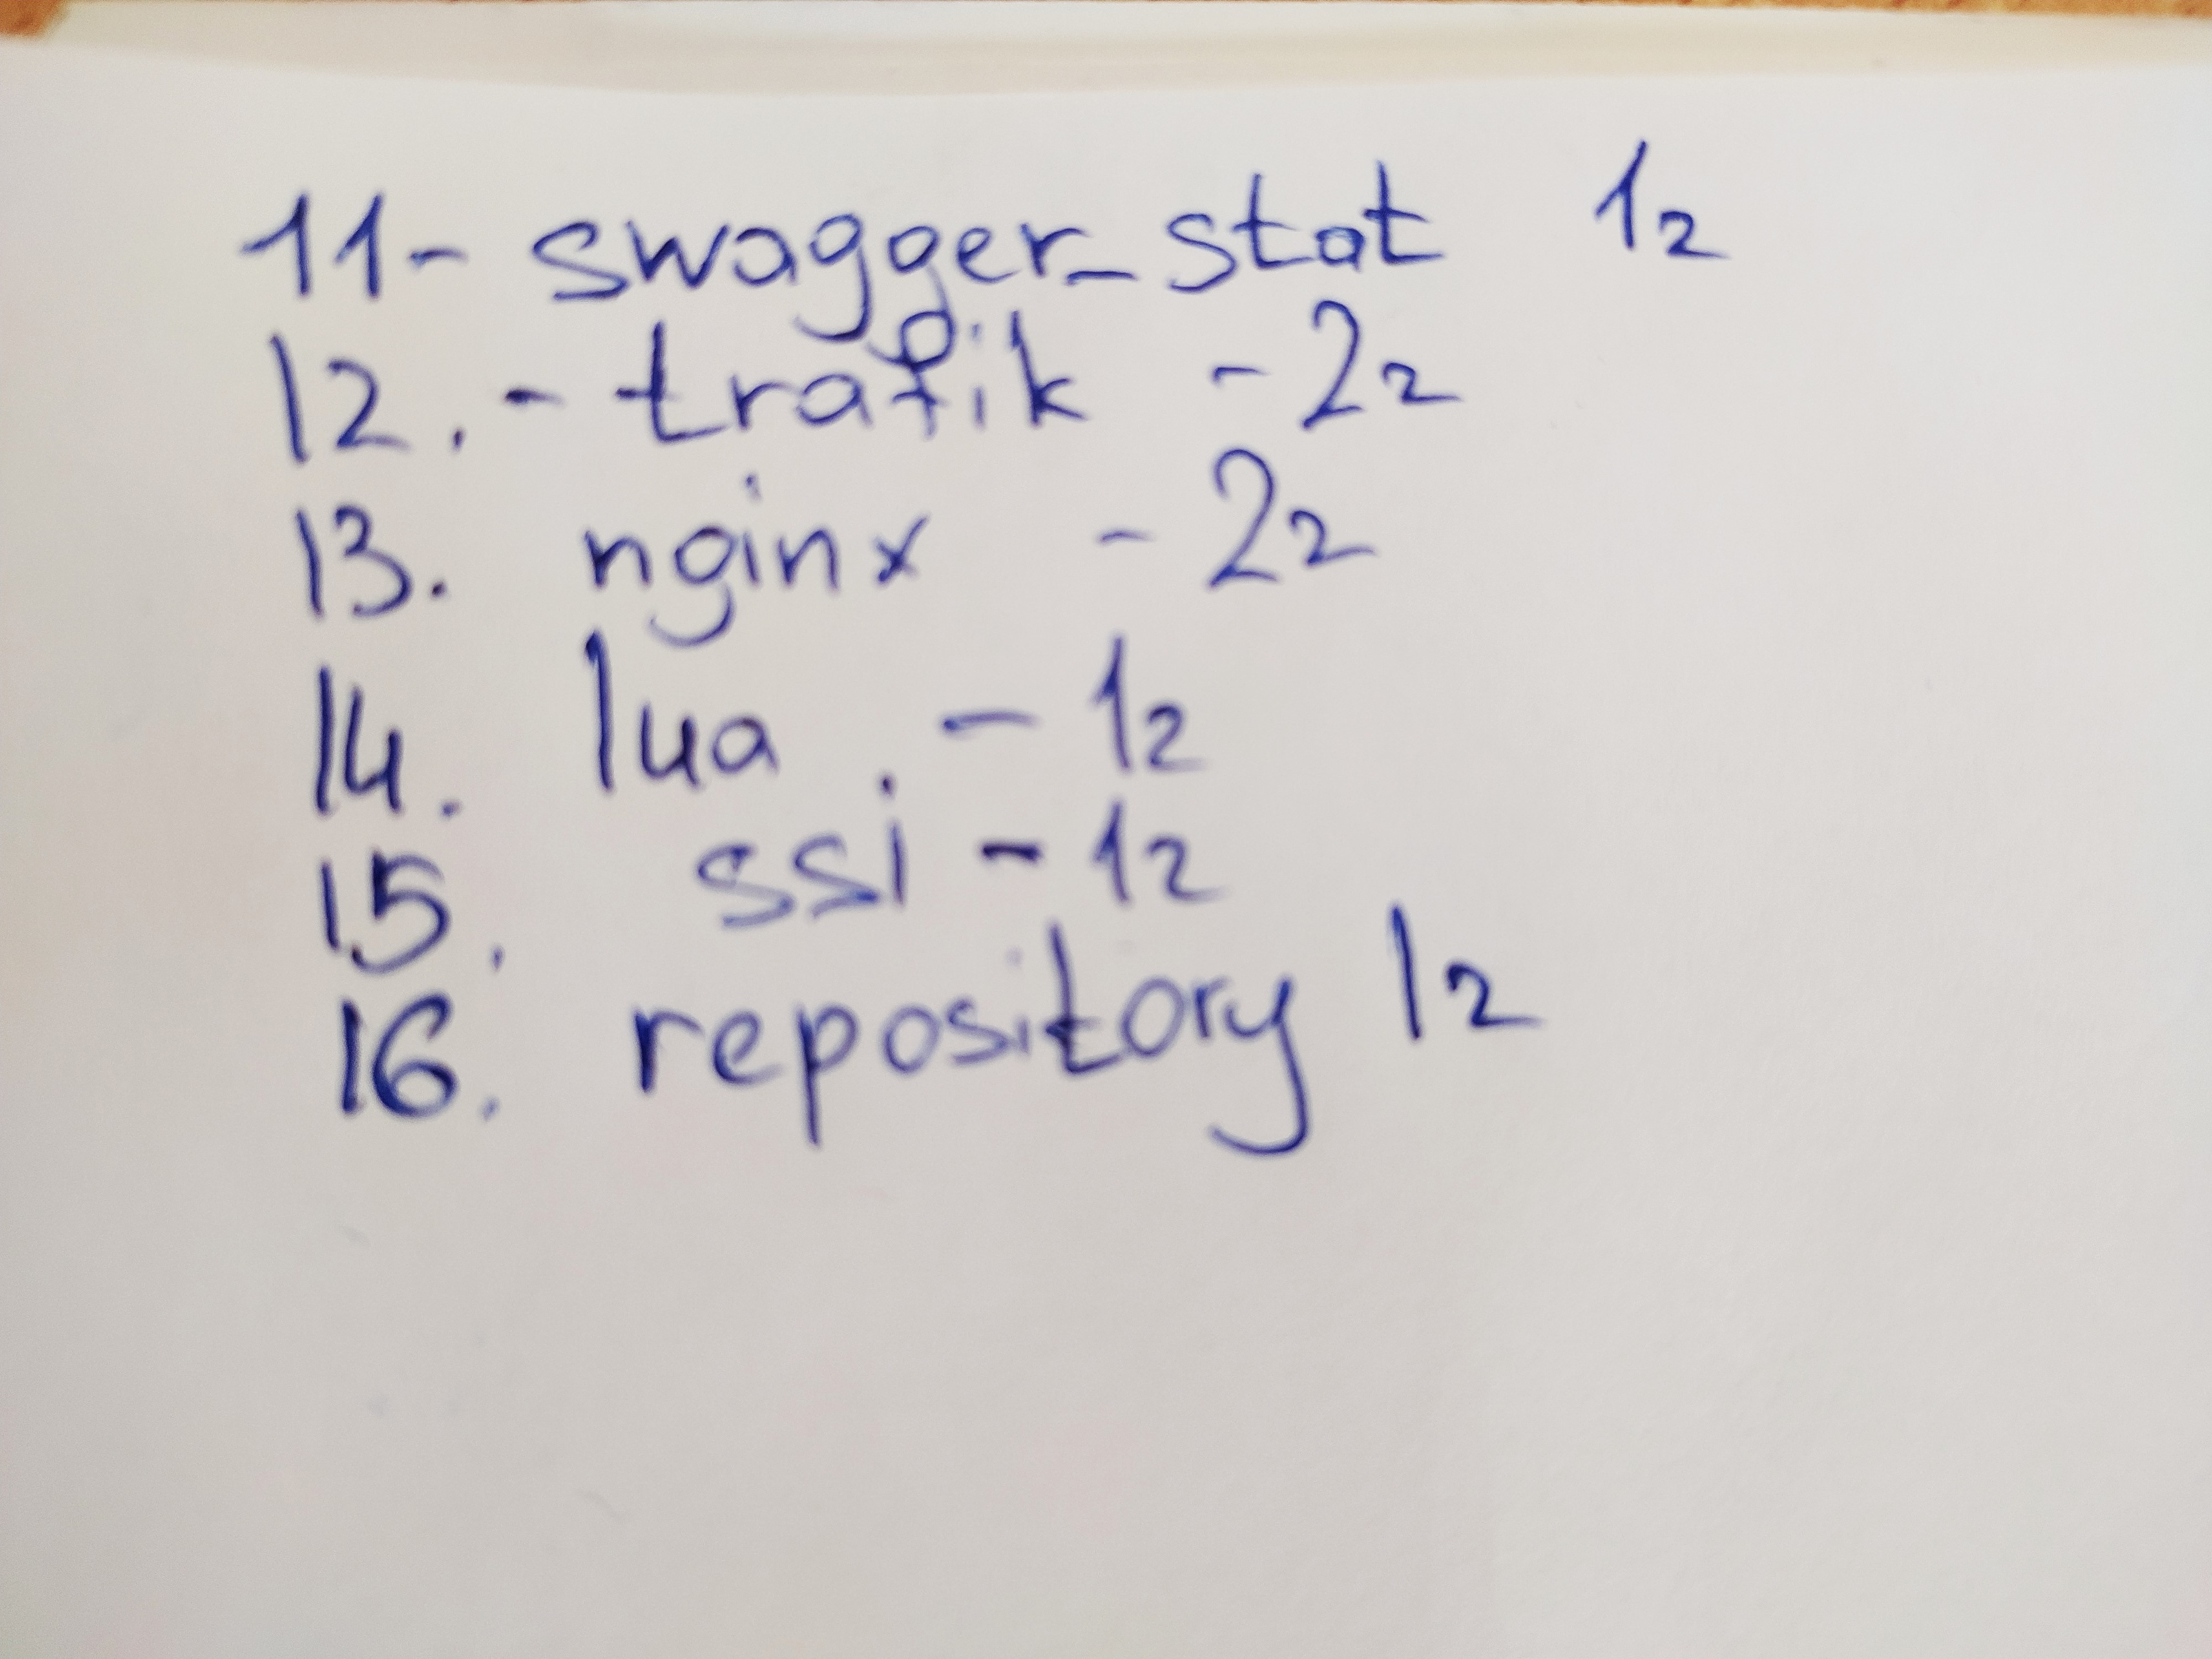 11- swagger_stat 12
12. - trafik - 22
13. nginx - 22
14. lua. - 12
15. ssi - 12
16. repository 12